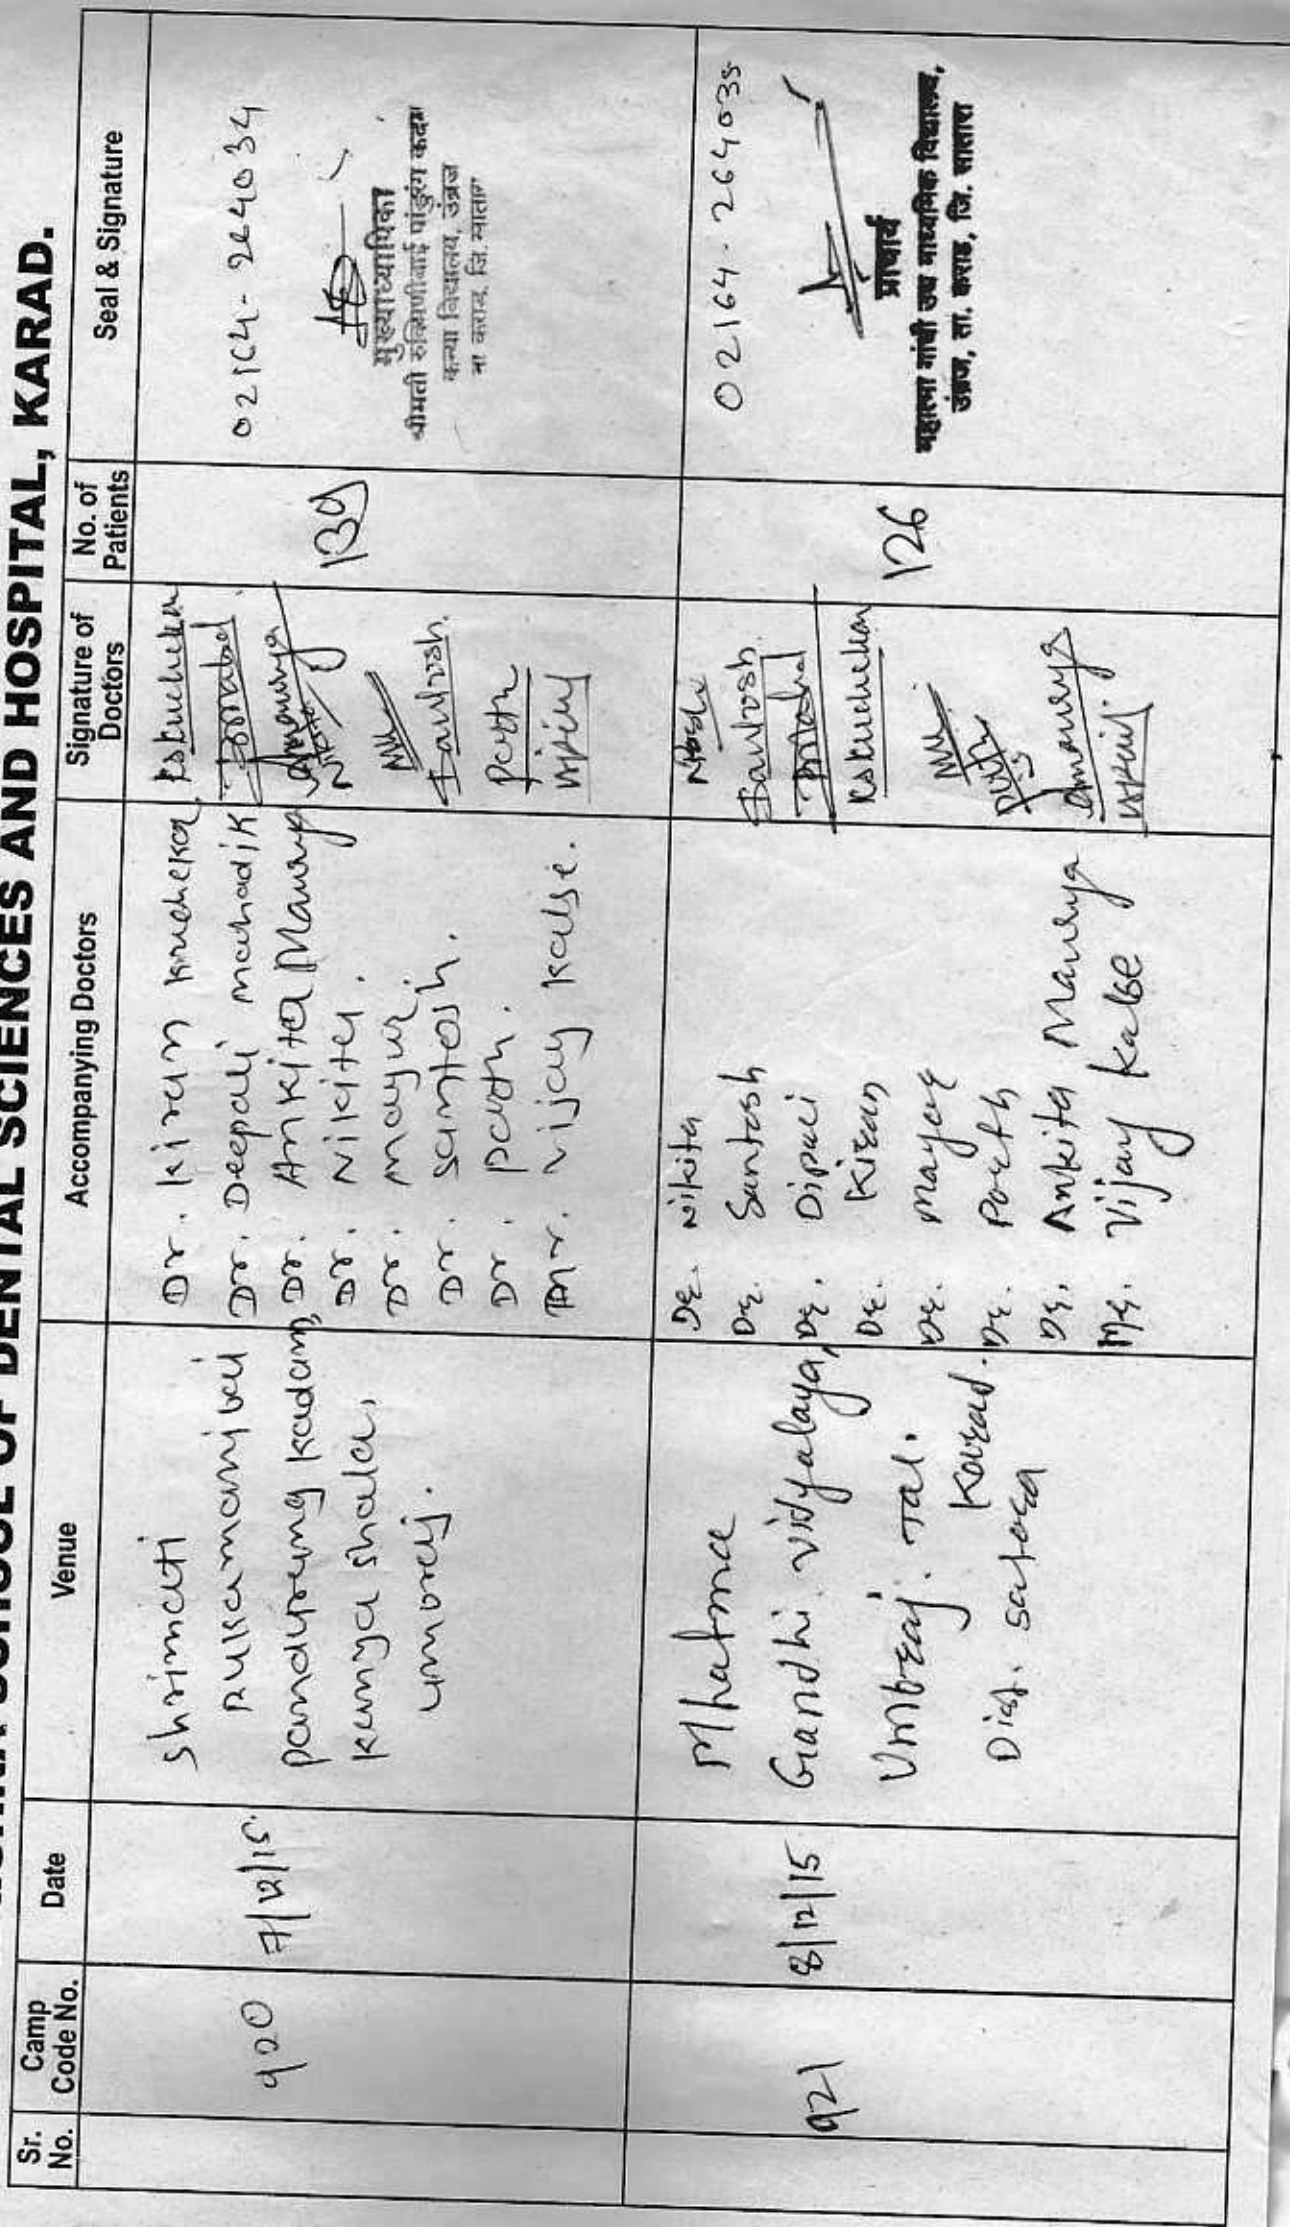 SCHOOL OF DENTAL SCIENCES AND HOSPITAL, KARAD.
Sr. No.
Camp Code No.
Date
Venue
Accompanying Doctors
Signature of Doctors
No. of Patients
Seal & Signature
920
7/12/15
Shrimati
Rukamanibai
pandurang kadam,
kanya shala,
umbraj.
Dr. kiran kucheker
Dr. Deepali mahadik
Dr. Ankita Maurya
Dr. Nikita.
Dr. mayur.
Dr. santosh.
Dr. parth.
Mr. vijay kalse.
Kskuchekar
Santosh.
parth
139
02164-264034
मुख्याध्यापिका
श्रीमती रुक्मिणीबाई पांडुरंग कदम
कन्या विद्यालय, उंब्रज
ता. कराड, जि. सातारा
921
8/12/15
Mhatma
Gandhi vidyalaya,
Umbraj. Tal.
Karad.
Dist. Satara
Dr. Nikita
Dr. Santosh
Dr. Dipali
Dr. Kiran
Dr. Mayur
Dr. Parth
Dr. Ankita Maurya
Mr. Vijay Kalse
Santosh
Kskuchekar
Amaurya
126
02164-264035
प्राचार्य
महात्मा गांधी उच्च माध्यमिक विद्यालय,
उंब्रज, ता. कराड, जि. सातारा